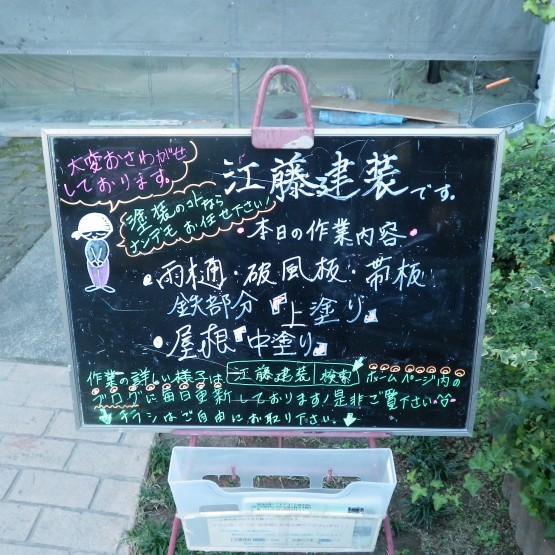 大変おさわがせ
しております。
江藤建装です.
塗装のコトなら
ナンデモお任せ下さい!
・本日の作業内容・
・雨樋・破風板・帯板
鉄部分『上塗り』
・屋根『中塗り』
作業の詳しい様子は 江藤建装 検索 ホームページ内の
ブログに毎日更新しております!是非ご覧下さい
↓チラシはご自由にお取り下さい。↓